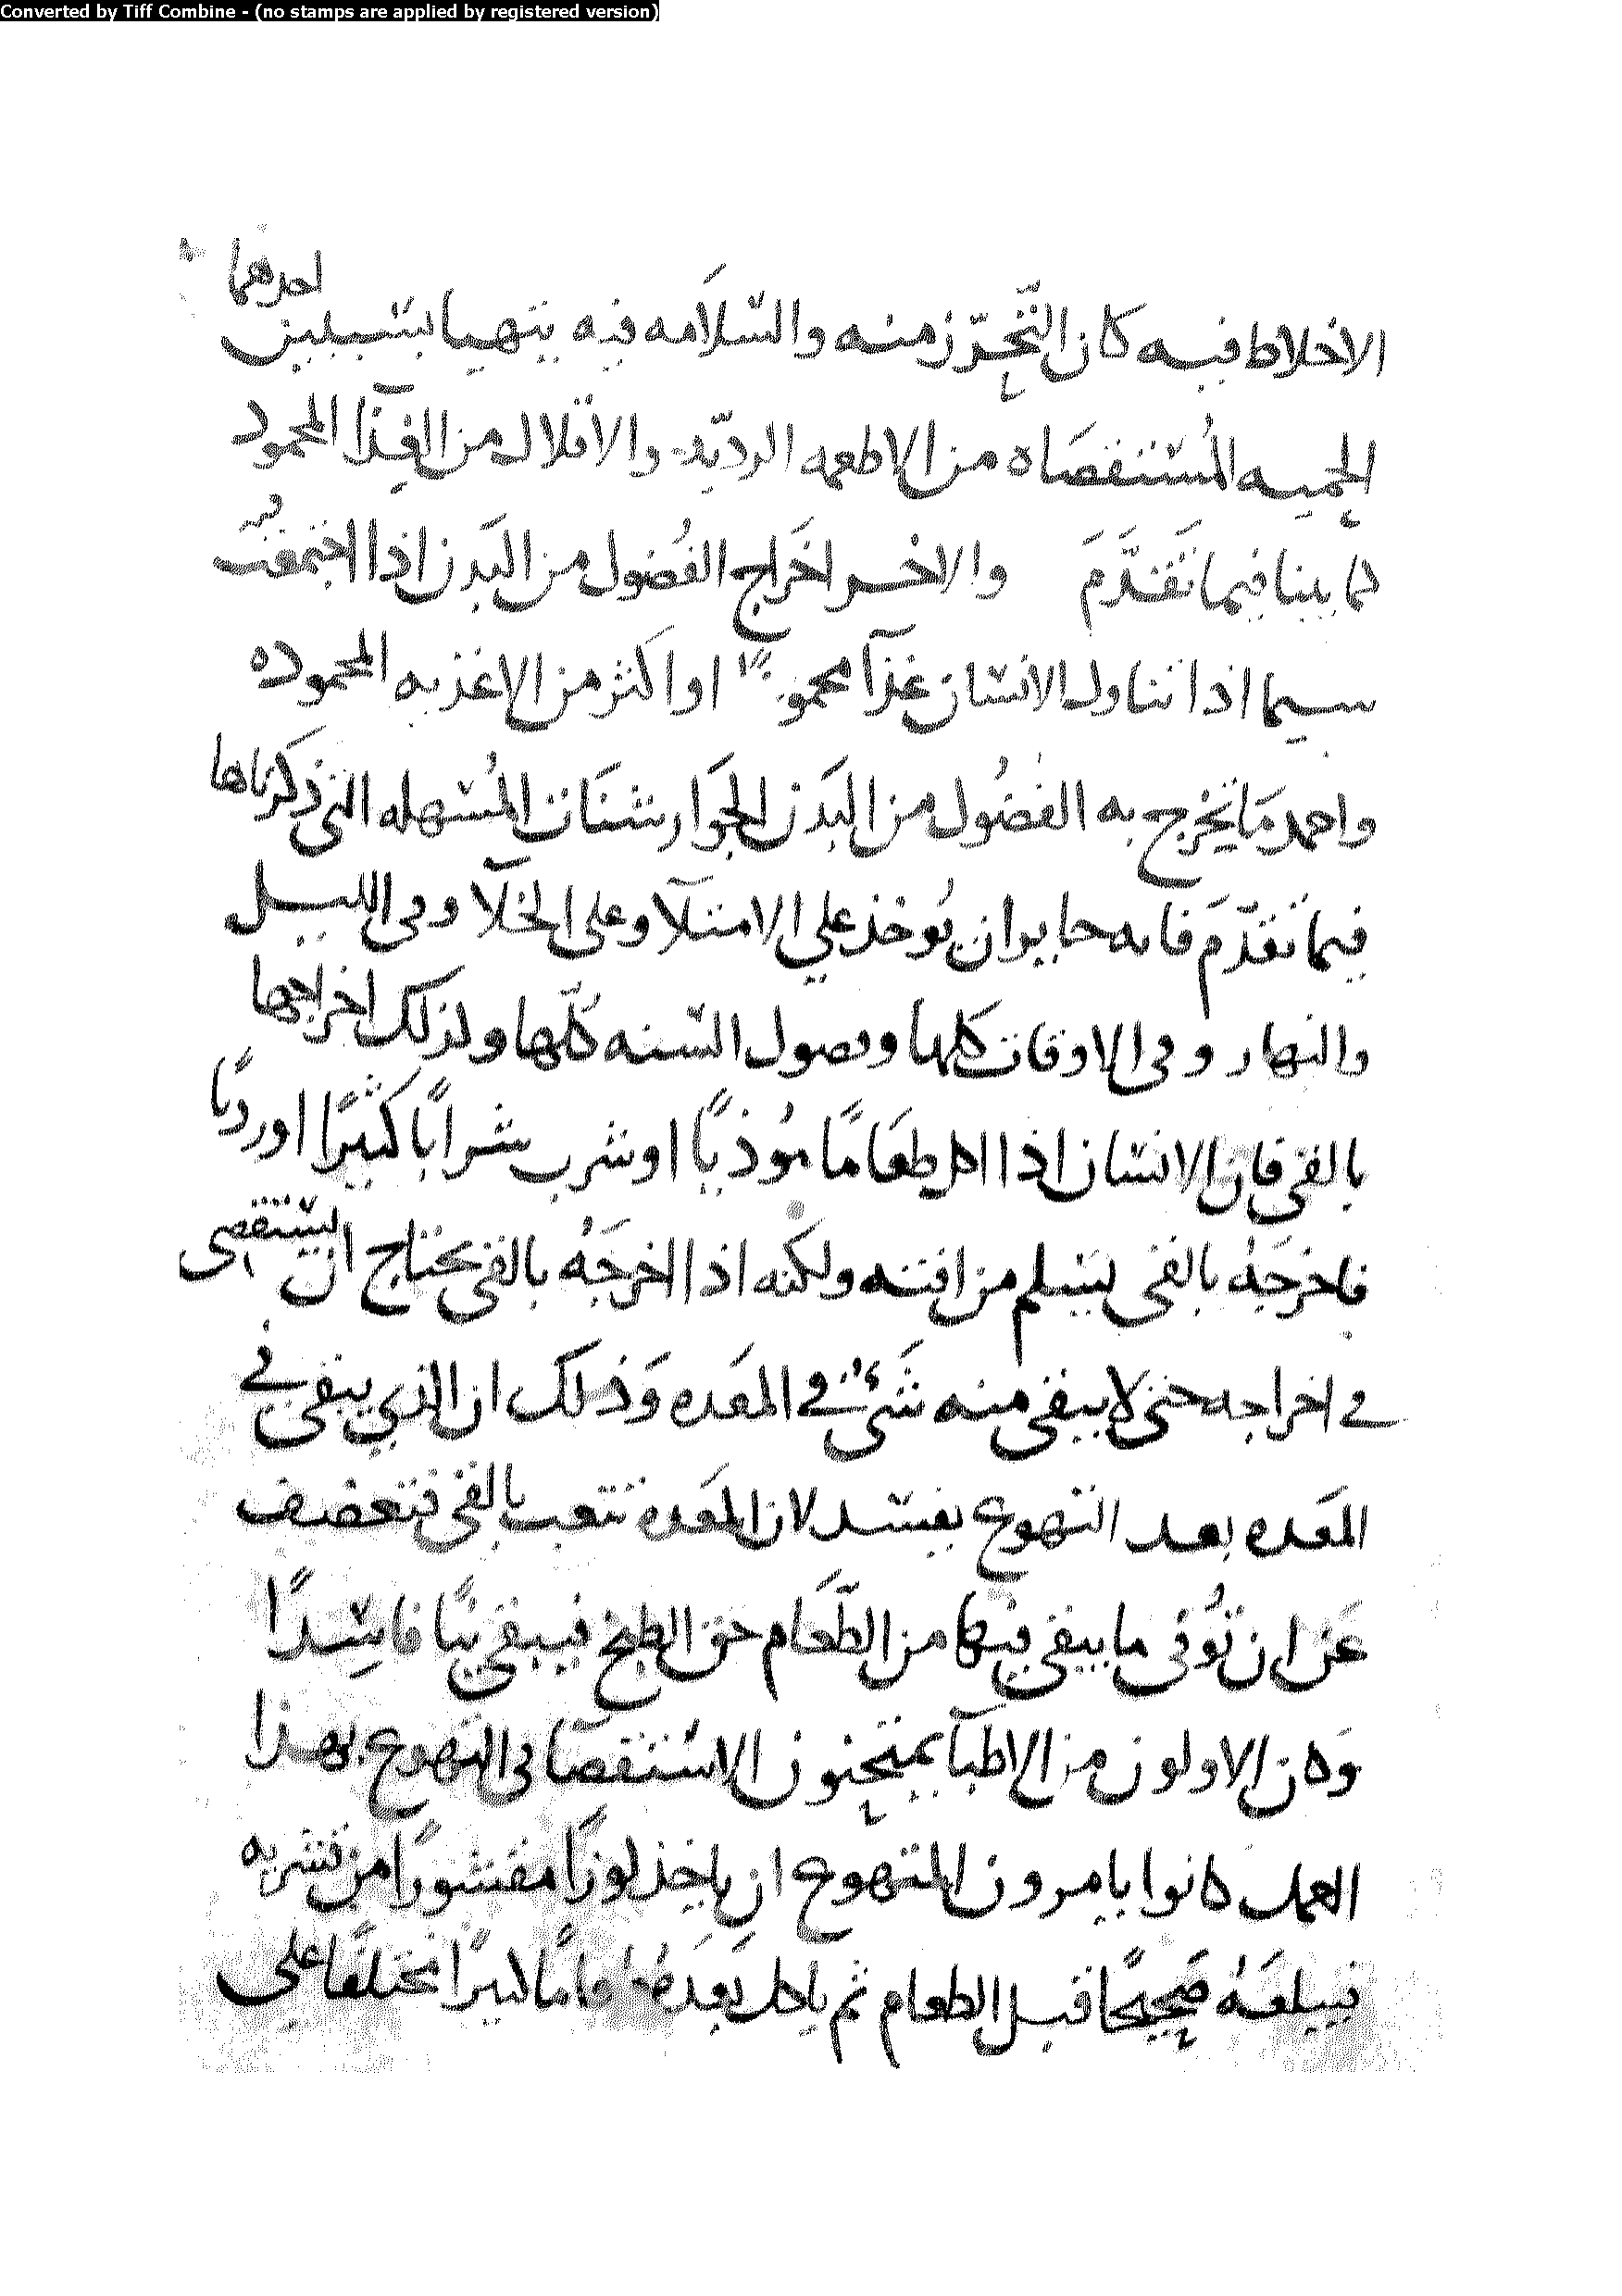 Converted by Tiff Combine - (no stamps are applied by registered version)
الاخلاط فيه كان التحرّز منه والسّلامه فيه يتهيا بسبيلين احدهما
الحميه المُستقصَاه من الاطعمه الرديّه والاقلال من الغِذآ المحمود
كما بينا فيما تَقدَّمَ والاخر اخرَاج الفُضول من البَدن اذا اجتمعت فيه
سيما اذا تناول الانسان غذآ محمودًا او اكثر من الاغذيه المحموده
واحمد مَا تخرج به الفضُول من البَدن الجَوَارشنَات المُسهله التى ذكرناها
فيما تقدّمَ فانه جايز ان يُوخذ علي الامتلآ وعلى الخلآ وفى الليل
والنهار وفى الاوقات كلها وفصول السّنه كلّها ولذلك اخراجها
بالقى فان الانسان اذا اكل طعَامًا مُوذيًا او شرب شرابًا كثيرًا او رديًا
فاخرجَهُ بالقى ليسلم من افته ولكنه اذا اخرجَهُ بالقى يحتاج ان يستقصى
في اخراجه حتى لا يبقى منه شَىءٌ في المعَده وَذلك ان الذي يبقى في
المعَده بعد التهوع يفسد لان المعَده تتعب بالقى فتضعف
عَن ان تُوفى ما يبقى فيها من الطّعَام حق الطبخ فيبقى نيًا فاسِدًا
وَكان الاولون من الاطبآ يمتحنون الاستقصآ فى التهوع بهذا
العمل كانوا يامرون المتهوع ان ياخذ لوزًا مقشورًا من قشريه
فيبلعَهُ صَحيحًا قبل الطعام ثم ياكل بَعدَهُ طعامًا كثيرًا مختلفًا على